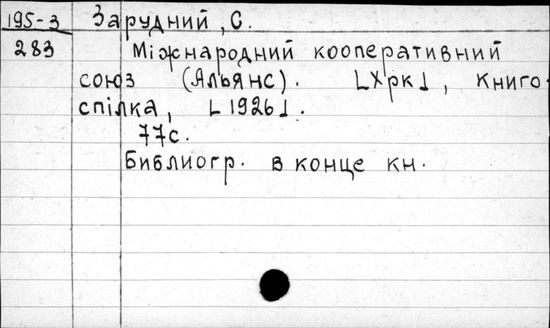 195-3 Зарудний, С.
283 Міжнародний кооперативний
союз (Альянс). [Хрк], Книго-
спілка, [1926].
77с.
Библиогр. в конце кн.